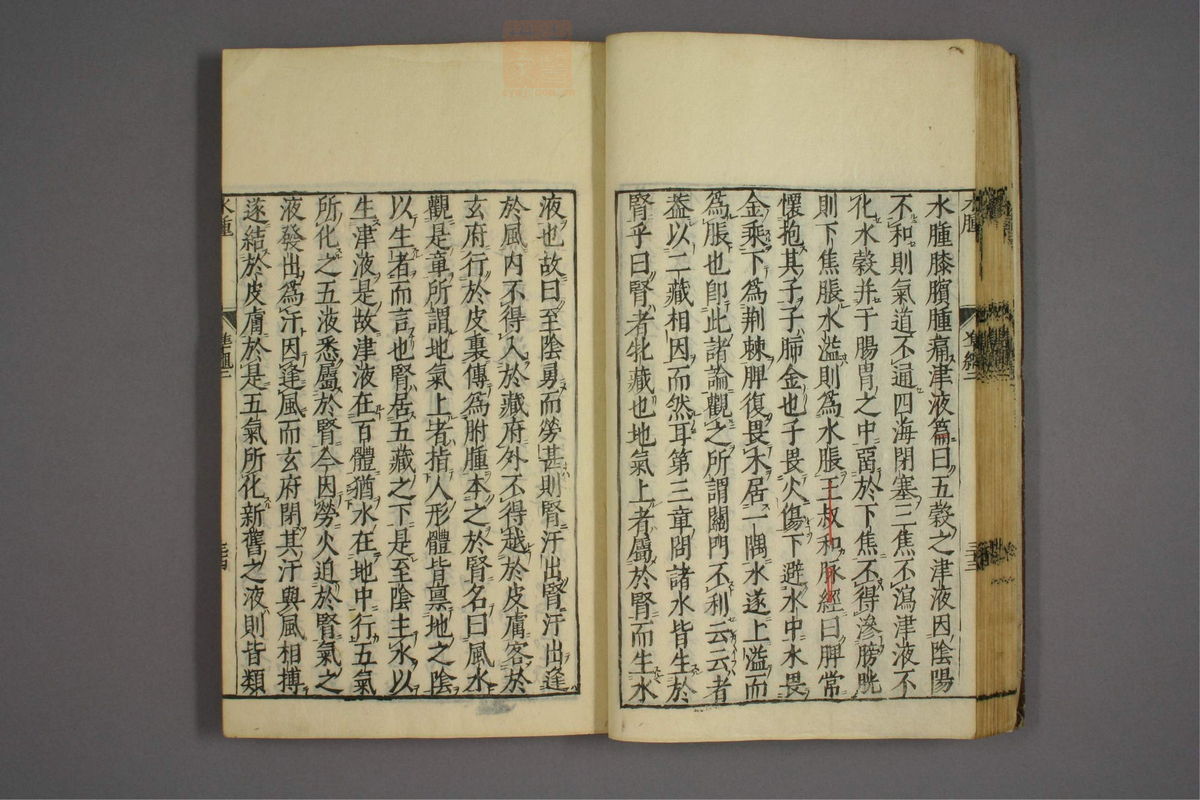 水腫膝臏腫痛津液篇曰五穀之津液因陰陽
不和則氣道不通四海閉塞三焦不瀉津液不
化水穀并于腸胃之中畱於下焦不得滲膀胱
則下焦脹水溢則為水脹王叔和脉經曰脾常
懷抱其子子肺金也子畏火傷下避水中水畏
金乘下為荆棘脾復畏木居一隅水遂上溢而
為脹也卽此諸論觀之所謂關門不利云云者
葢以二藏相因而然耳第三章問諸水皆生於
腎乎曰腎者牝藏也地氣上者屬於腎而生水
液也故曰至陰勇而勞甚則腎汗出腎汗出逢
於風內不得入於藏府外不得越於皮膚客於
玄府行於皮裏傳為胕腫本之於腎名曰風水
觀是章所謂地氣上者指人形體皆禀地之陰
以生者而言也腎居五藏之下是至陰主水以
生津液是故津液在百體猶水在地中行五氣
所化之五液悉屬於腎今因勞火迫於腎氣之
液發出為汗因逢風而玄府閉其汗與風相搏
遂結於皮膚於是五氣所化新舊之液則皆類
水腫